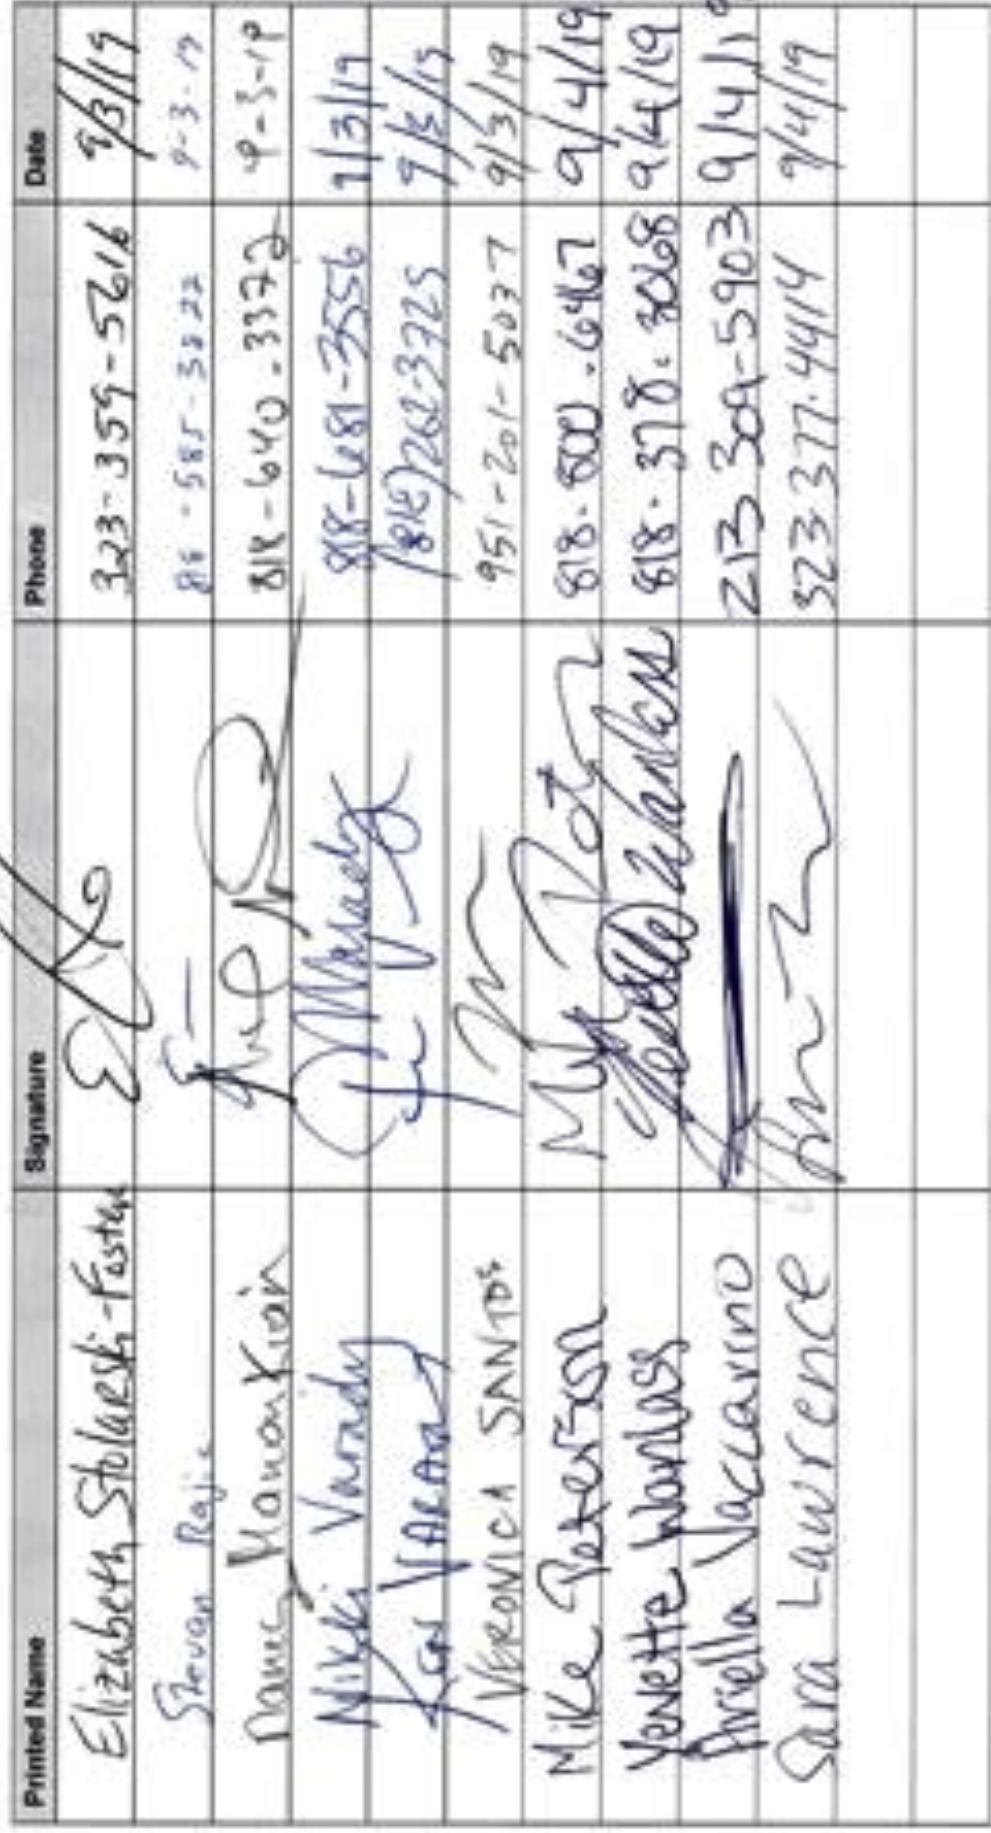 Printed Name Signature Phone Date
Elizabeth Stolarski-Foster 323-359-5616 9/3/19
Stevan 818-585-3822 9-3-19
Manoukian 818-640-3372 9-3-19
Nikki Varady 818-681-3556 9/3/19
Ken VARADY (818) 262-3725 9/3/19
VERONICA SANTOS 951-201-5037 9/3/19
Mike Peterson 818-800-6467 9/4/19
Yenette Wanlass Yenette Wanlass 818.378.3068 9/4/19
Ariella Vaccarino 213 309-5903 9/4/19
Sara Lawrence 323 377.4414 9/4/19